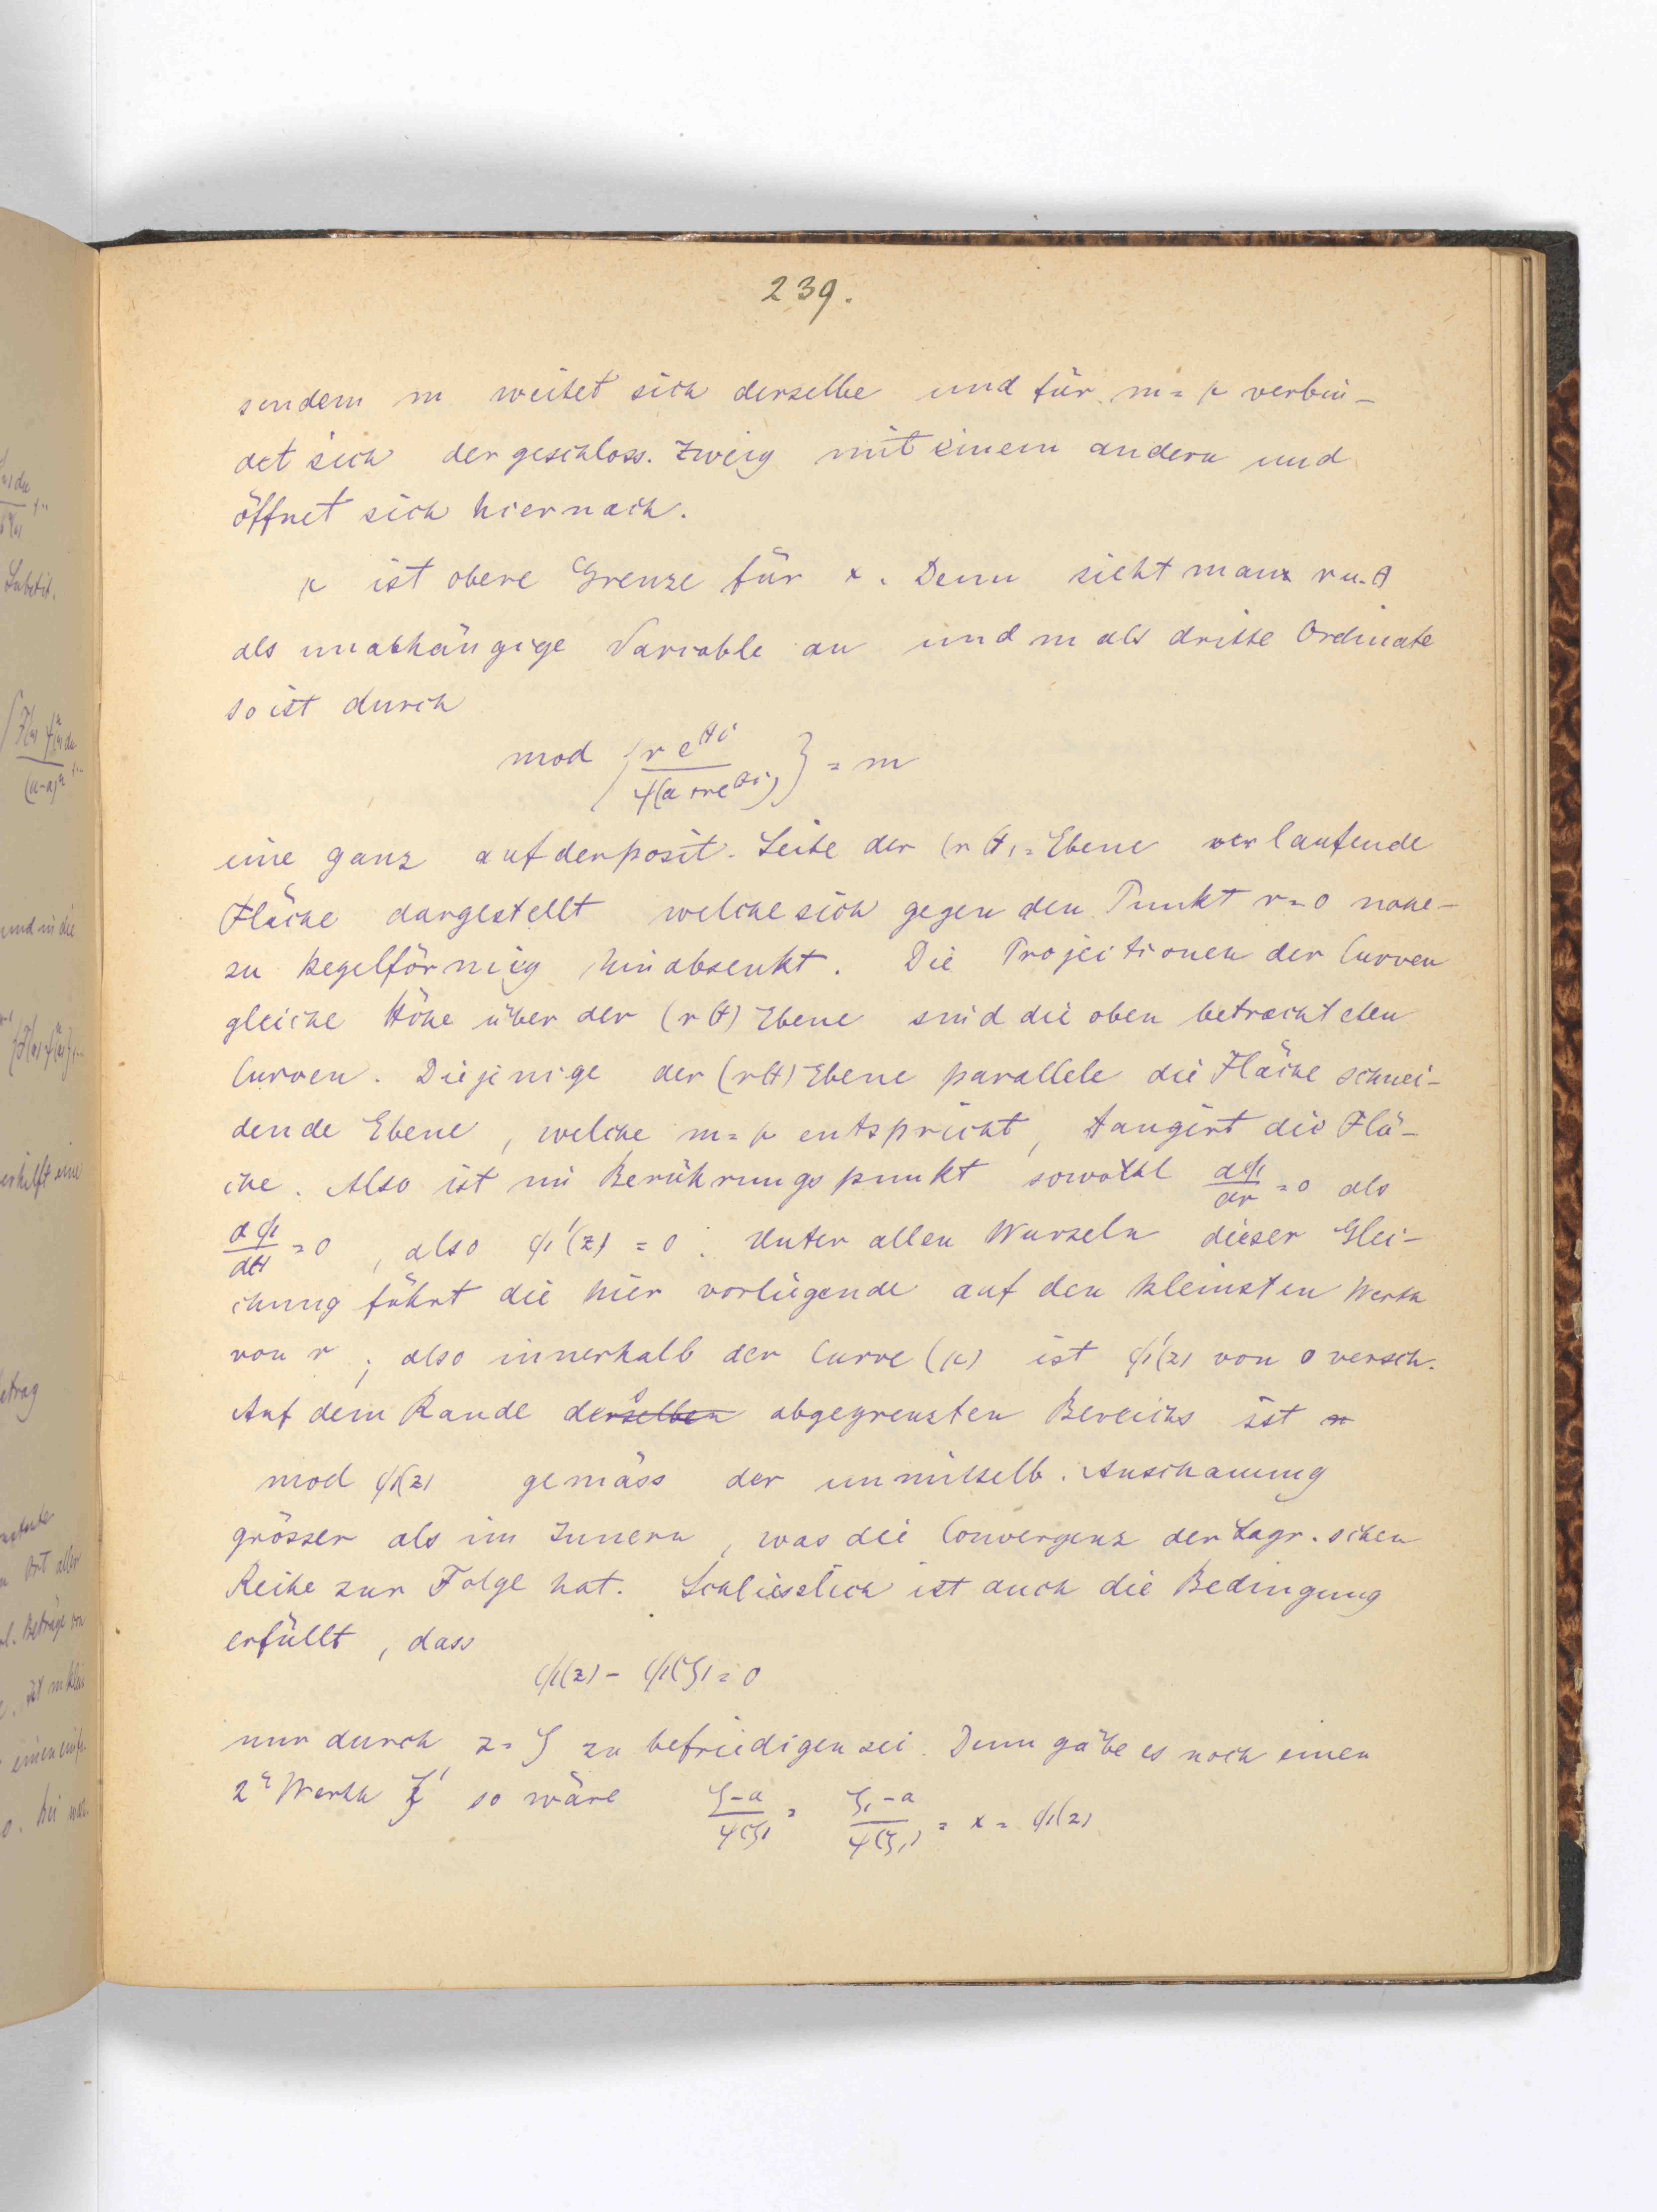 239.
sendem m weitet sich derselbe und für m = μ verbin-
det sich der geschloss. Zweig mit einem andern und
öffnet sich hiernach.
μ ist obere Grenze für x. Denn sieht man r u. θ
als unabhängige Variable an und m als dritte Ordinate
so ist durch
mod { r e^{θi} / f(a + re^{θi}) } = m
eine ganz auf der posit. Seite der (rθ) = Ebene verlaufende
Fläche dargestellt welche sich gegen den Punkt r = 0 nahe-
zu kegelförmig hinabsenkt. Die Projectionen der Curven
gleiche Höhe über der (rθ) Ebene sind die oben betrachteten
Curven. Diejenige der (rθ) Ebene parallele die Fläche schnei-
dende Ebene, welche m = μ entspricht, tangirt die Flä-
che. Also ist im Berührungspunkt sowohl dψ/dr = 0 als
dψ/dθ = 0, also ψ'(z) = 0. Unter allen Wurzeln dieser Glei-
chung führt die hier vorliegende auf den kleinsten Werth
von r; also innerhalb der Curve (μ) ist ψ'(z) von 0 versch.
Auf dem Rande derselben abgegrenzten Bereichs ist
mod ψ(z) gemäss der unmittelb. Anschauung
grösser als im Innern, was die Convergenz der Lagr. schen
Reihe zur Folge hat. Schliesslich ist auch die Bedingung
erfüllt, dass
ψ(z) - ψ(ζ) = 0
nur durch z = ζ zu befriedigen sei. Denn gäbe es noch einen
2ⁿ Werth ζ' so wäre (ζ-a)/f(ζ) = (ζ₁-a)/f(ζ₁) = x = ψ(z)